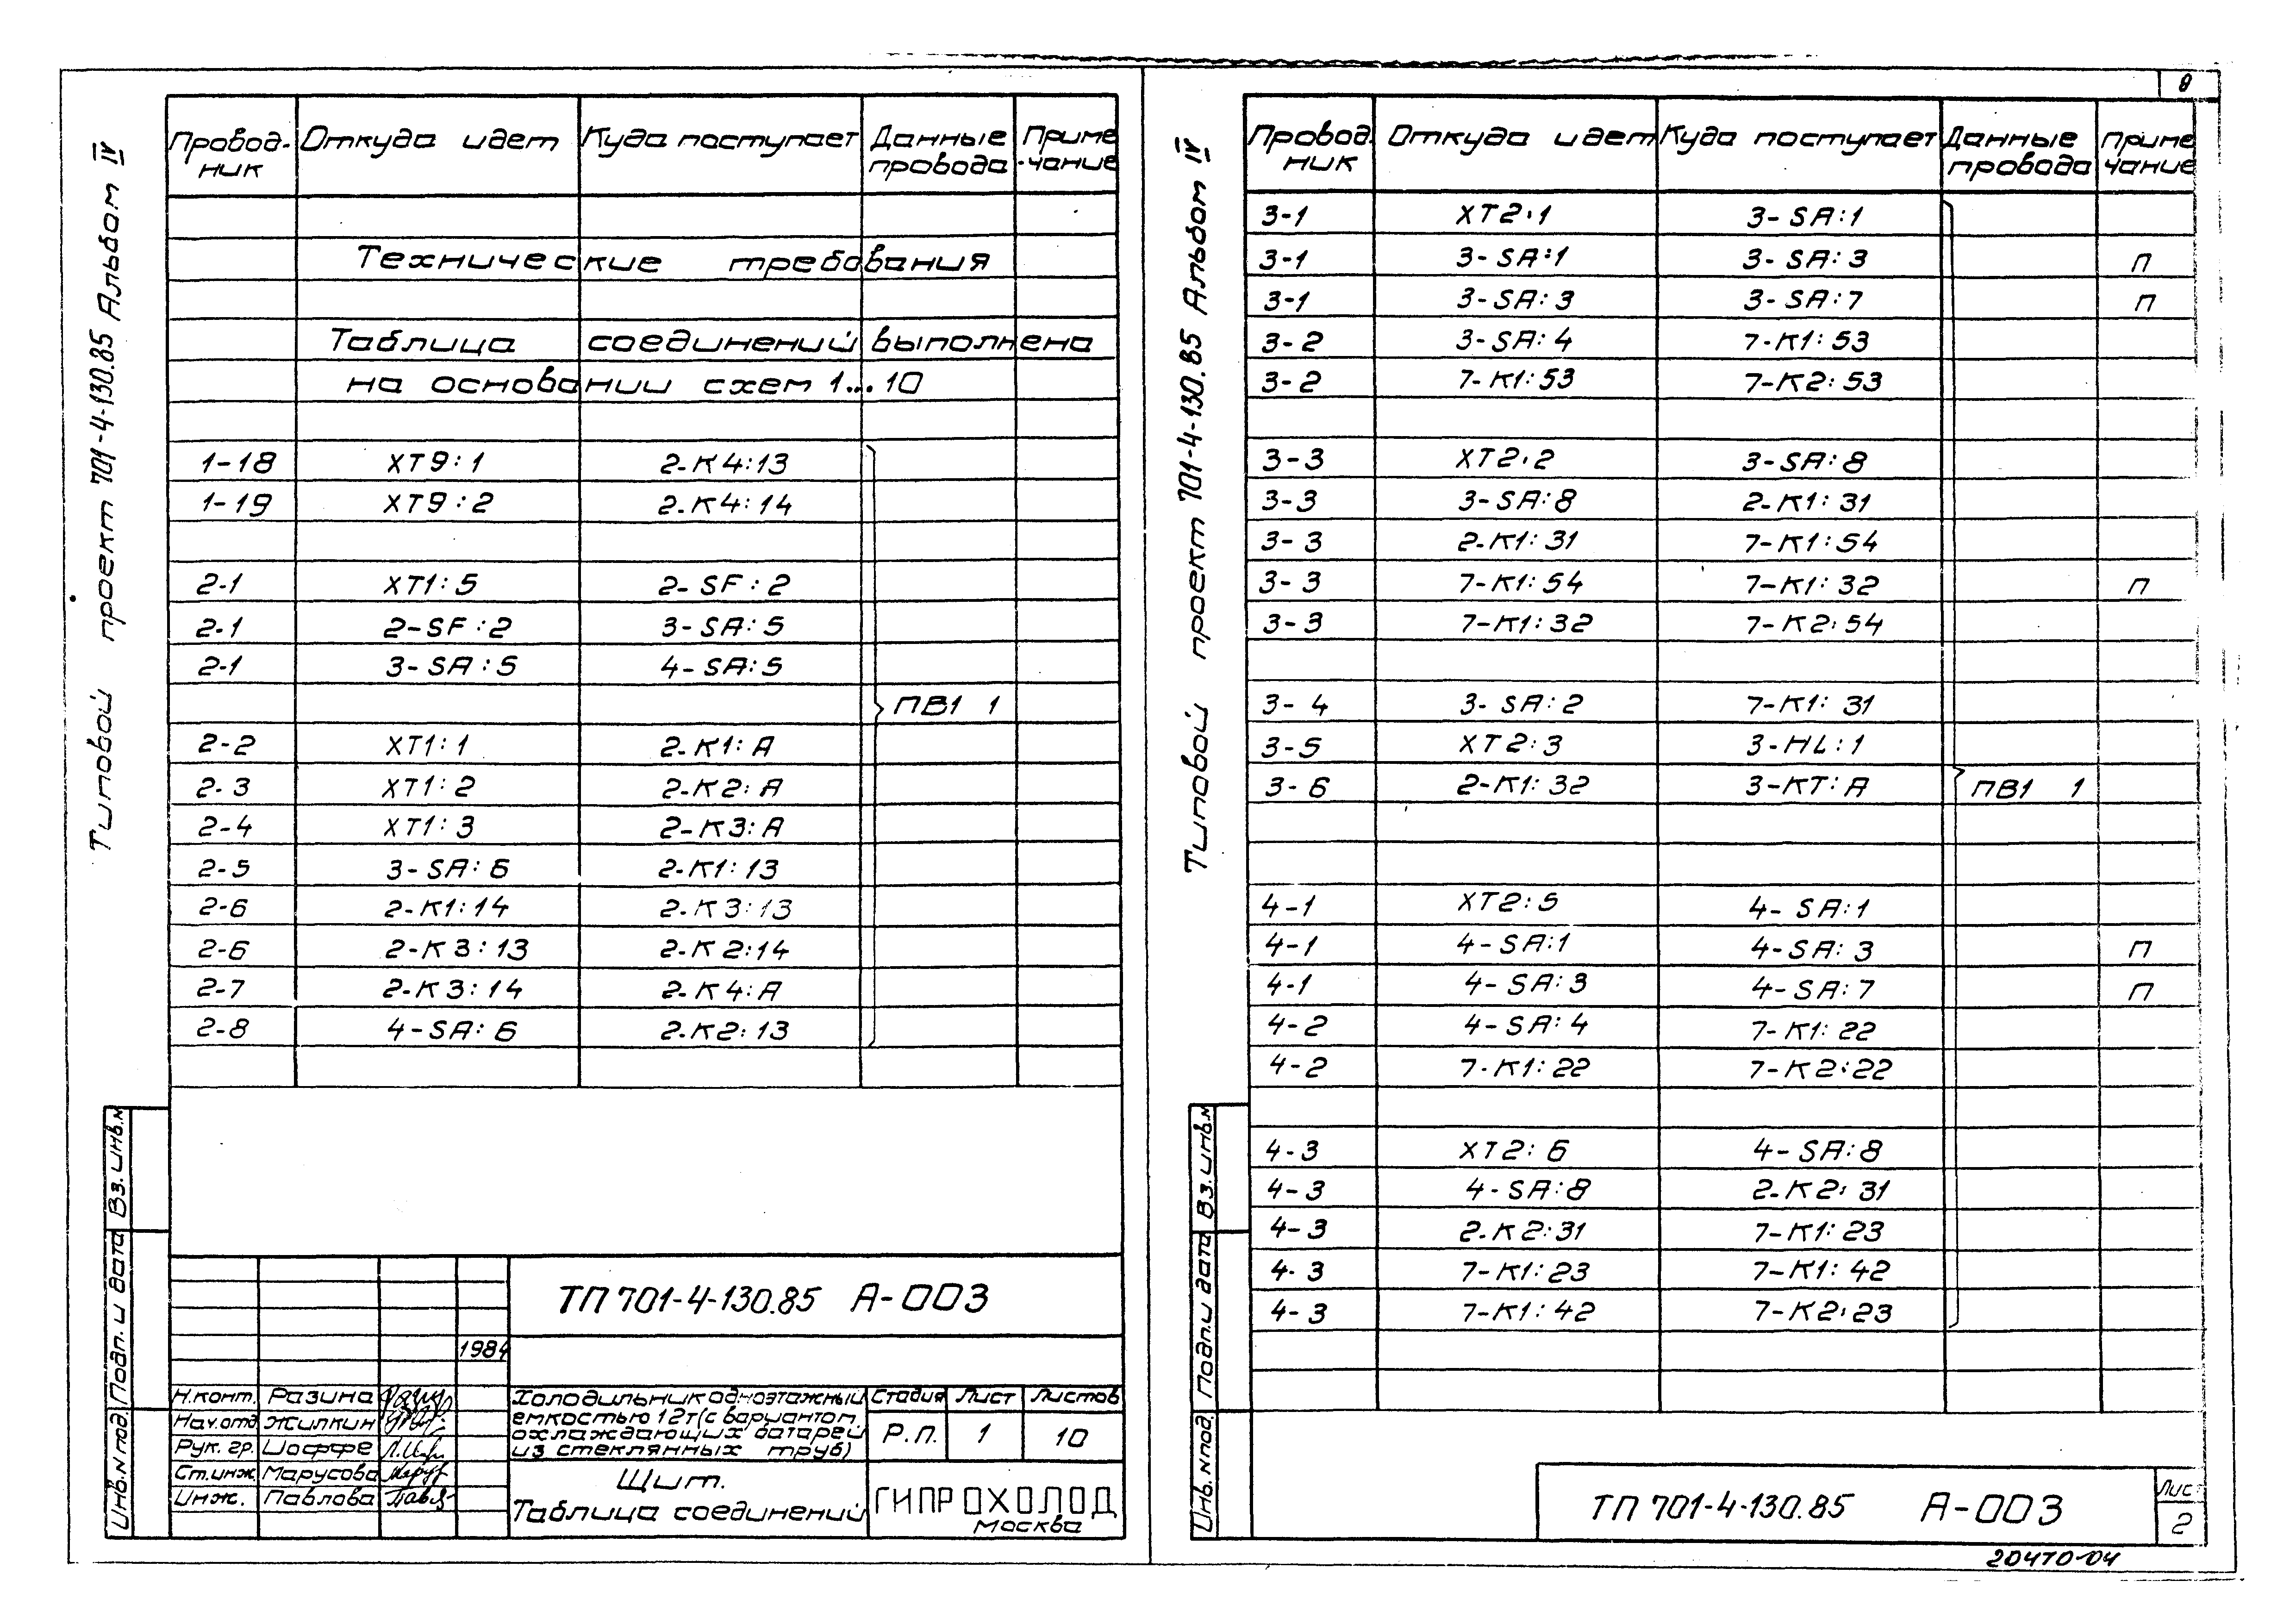 Типовой проект 701-4-130.85 Альбом IV
Провод- Откуда идет Куда поступает Данные Приме
ник провода -чание
Технические требования
Таблица соединений выполнена
на основании схем 1...10
1-18 XT9:1 2-К4:13
1-19 XT9:2 2-К4:14
2-1 XT1:5 2-SF:2
2-1 2-SF:2 3-SA:5
2-1 3-SA:5 4-SA:5
ПВ1 1
2-2 XT1:1 2-К1:А
2-3 XT1:2 2-К2:А
2-4 XT1:3 2-К3:А
2-5 3-SA:6 2-К1:13
2-6 2-К1:14 2-К3:13
2-6 2-К3:13 2-К2:14
2-7 2-К3:14 2-К4:А
2-8 4-SA:6 2-К2:13
Вз. инв.N
Подп. и дата
Инв.N под.
ТП 701-4-130.85 А-003
1984
Н.конт. Разина
Нач.отд Жилкин
Рук. гр. Иоффе
Ст.инж. Марусова
Инж. Павлова
Холодильник одноэтажный
емкостью 12т (с вариантом
охлаждающих батарей
из стеклянных труб)
Стадия Лист Листов
Р.П. 1 10
Щит.
Таблица соединений
ГИПРОХОЛОД
Москва
8
Типовой проект 701-4-130.85 Альбом IV
Провод. Откуда идет Куда поступает Данные Приме
ник провода чание
3-1 XT2:1 3-SA:1
3-1 3-SA:1 3-SA:3 П
3-1 3-SA:3 3-SA:7 П
3-2 3-SA:4 7-К1:53
3-2 7-К1:53 7-К2:53
3-3 XT2:2 3-SA:8
3-3 3-SA:8 2-К1:31
3-3 2-К1:31 7-К1:54
3-3 7-К1:54 7-К1:32 П
3-3 7-К1:32 7-К2:54
3-4 3-SA:2 7-К1:31
3-5 XT2:3 3-HL:1
3-6 2-К1:32 3-КТ:А ПВ1 1
4-1 XT2:5 4-SA:1
4-1 4-SA:1 4-SA:3 П
4-1 4-SA:3 4-SA:7 П
4-2 4-SA:4 7-К1:22
4-2 7-К1:22 7-К2:22
4-3 XT2:6 4-SA:8
4-3 4-SA:8 2-К2:31
4-3 2-К2:31 7-К1:23
4-3 7-К1:23 7-К1:42
4-3 7-К1:42 7-К2:23
Вз. инв.N
Подп. и дата
Инв. N под.
ТП 701-4-130.85 А-003
Лист
2
20470-04